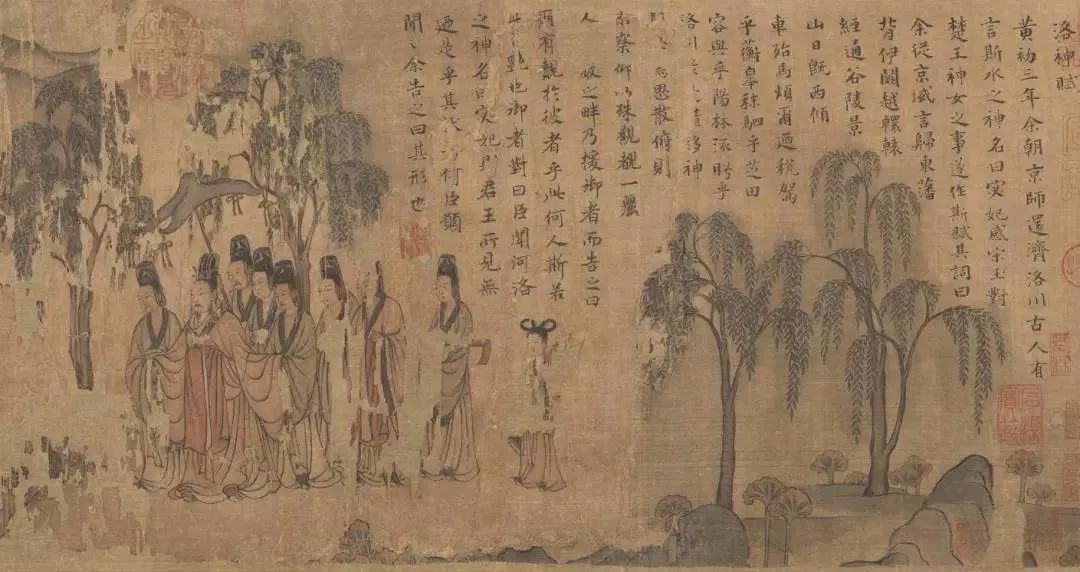 洛神賦
黃初三年余朝京師還濟洛川古人有
言斯水之神名曰宓妃感宋玉對
楚王神女之事遂作斯賦其詞曰
余從京域言歸東藩
背伊闕越轘轅
經通谷陵景
山日既西傾
車殆馬煩爾迺稅駕
乎蘅皋秣駟乎芝田
容與乎陽林流眄乎
洛川於是精移神
思散俯則
察仰以殊觀覩一麗
人之畔乃援御者而告之曰
爾有覿於彼者乎此何人斯若
此艷也御者對曰臣聞河洛
之神名曰宓妃則君王所見無
迺是乎其狀若何臣願
聞之余告之曰其形也